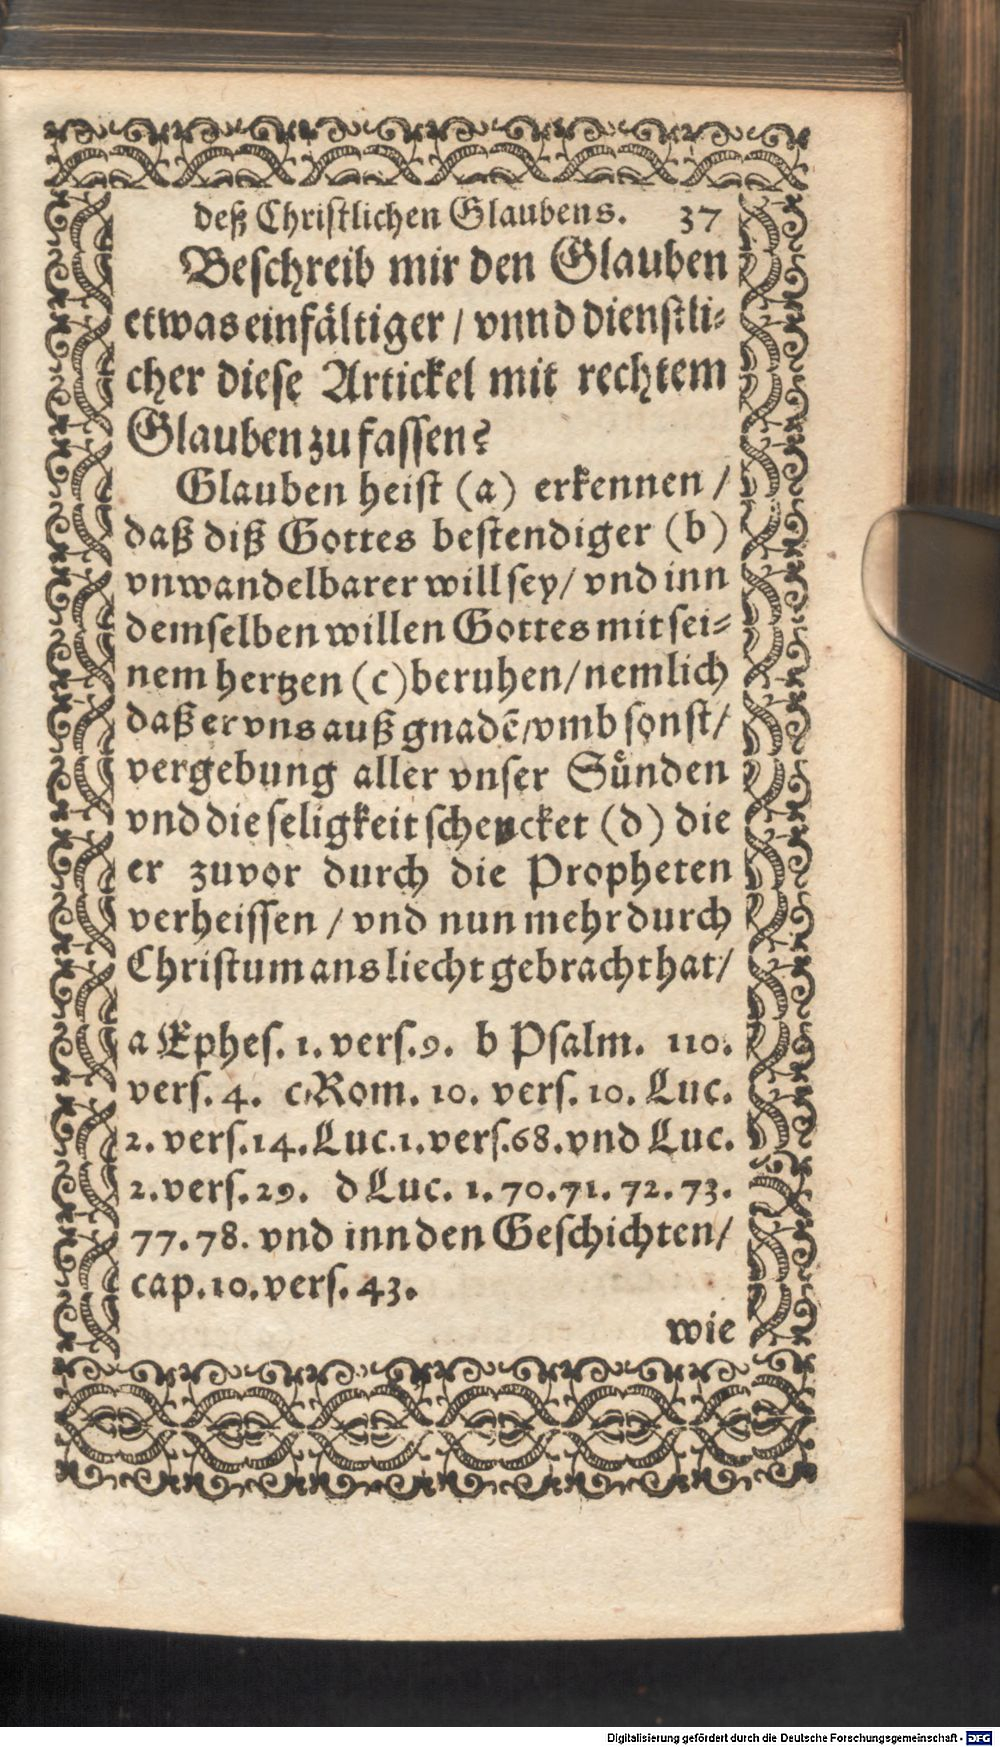 deß Christlichen Glaubens. 37
Beschreib mir den Glauben
etwas einfältiger / vnnd dienstli=
cher diese Artickel mit rechtem
Glauben zu fassen?
Glauben heist (a) erkennen /
daß diß Gottes bestendiger (b)
vnwandelbarer will sey / vnd inn
demselben willen Gottes mit sei=
nem hertzen (c) beruhen / nemlich
daß er vns auß gnadẽ / vmb sonst /
vergebung aller vnser Sünden
vnd die seligkeit schencket (d) die
er zuvor durch die Propheten
verheissen / vnd nun mehr durch
Christum ans liecht gebracht hat /
a Ephes. 1. vers. 9. b Psalm. 110.
vers. 4. c Rom. 10. vers. 10. Luc.
2. vers. 14. Luc. 1. vers. 68. vnd Luc.
2. vers. 29. d Luc. 1. 70. 71. 72. 73.
77. 78. vnd inn den Geschichten /
cap. 10. vers. 43.
wie
Digitalisierung gefördert durch die Deutsche Forschungsgemeinschaft - DFG